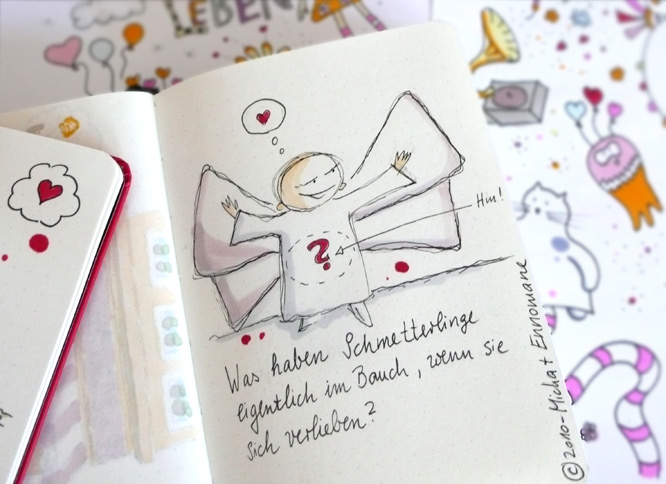 LEBEN
Hm!
?
Was haben Schmetterlinge
eigentlich im Bauch, wenn sie
sich verlieben?
© 2010-Micha+Ennomane